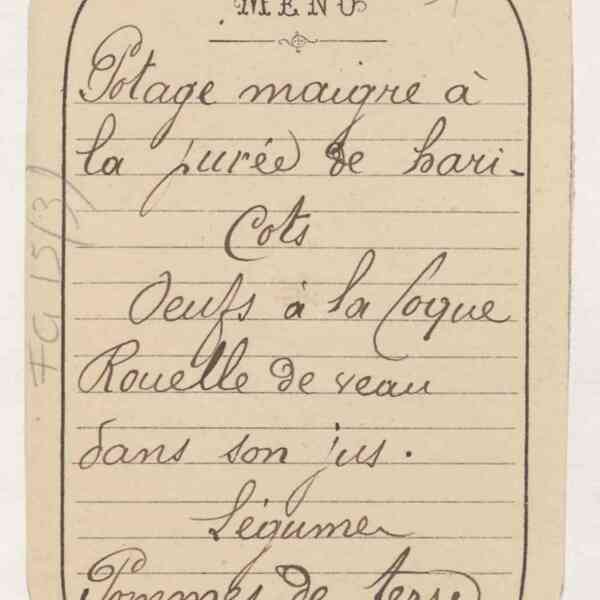 MENU
Potage maigre à
la purée de hari-
cots
Oeufs à la Coque
Rouelle de veau
dans son jus.
Légumes
Pommes de terre
FG 15(3)